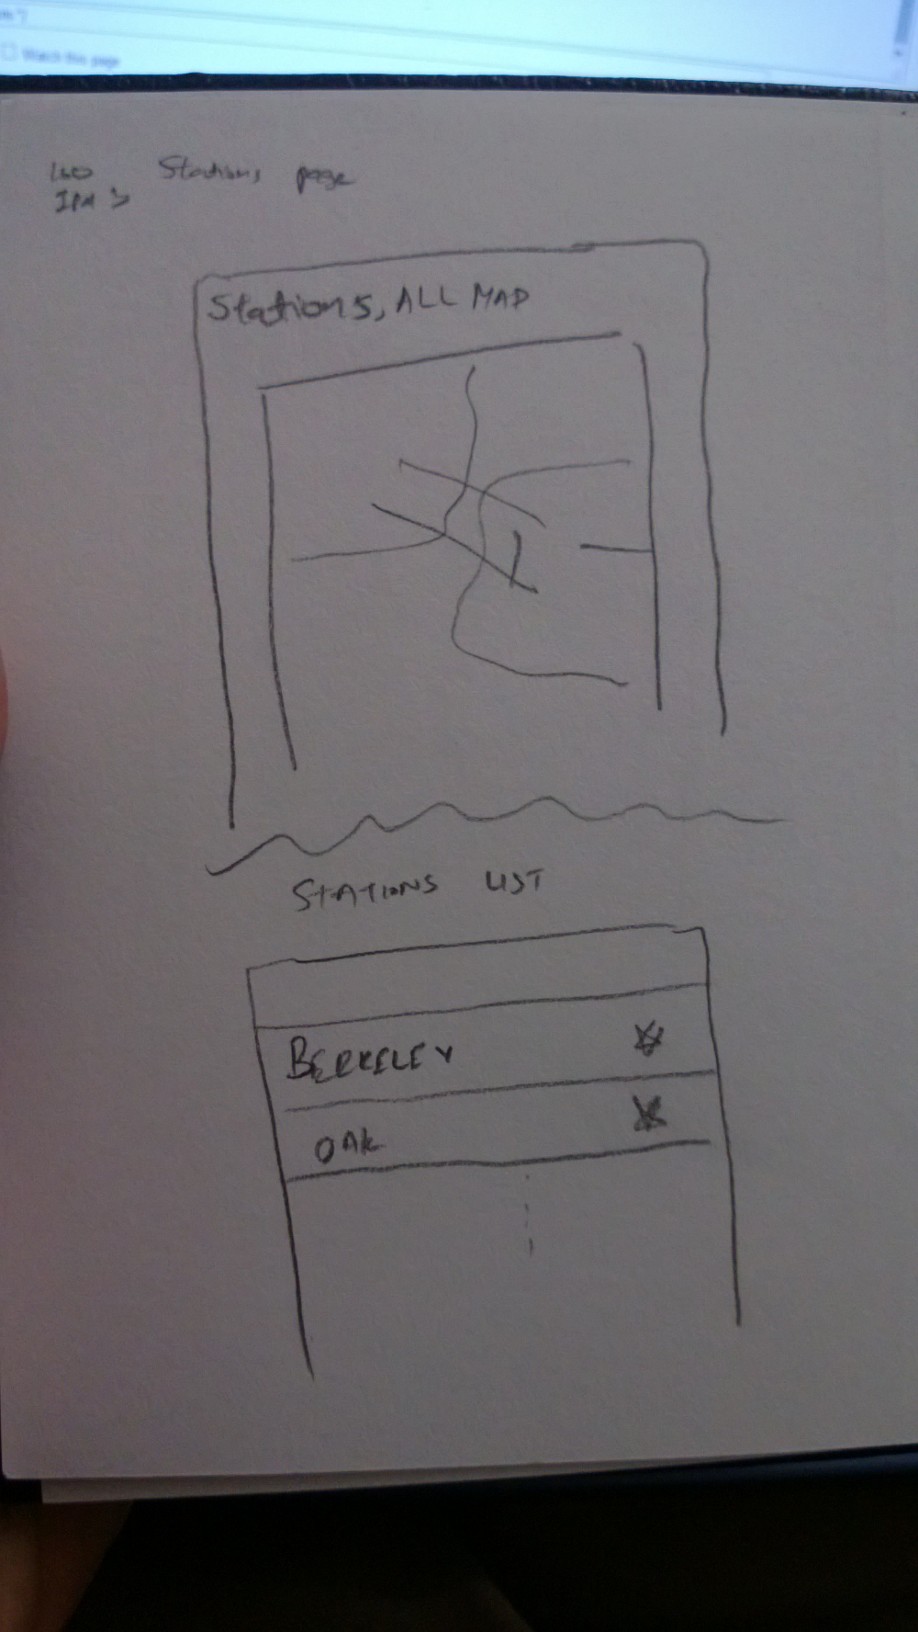 Watch this page
Stations page
Stations, ALL MAP
STATIONS LIST
BERKELEY
OAK